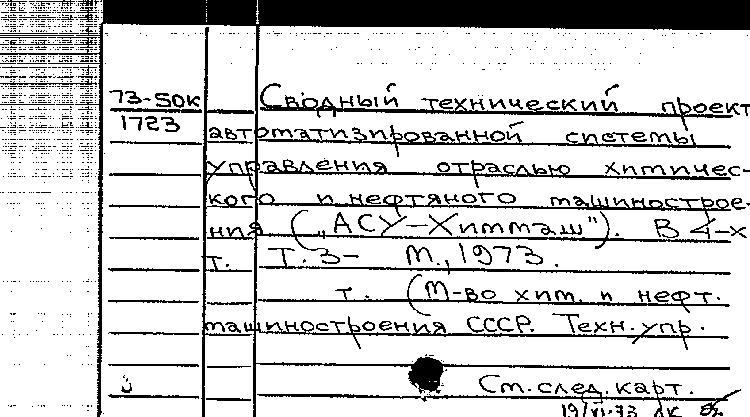 73-50К Сводный технический проект
1723 автоматизированной системы
управления отраслью химичес-
кого и нефтяного машинострое-
ния („АСУ-Химмаш"). В 4-х
т. Т.3- М., 1973.
т. (М-во хим. и нефт.
машиностроения СССР. Техн. упр.
См. след. карт.
19/VI-73